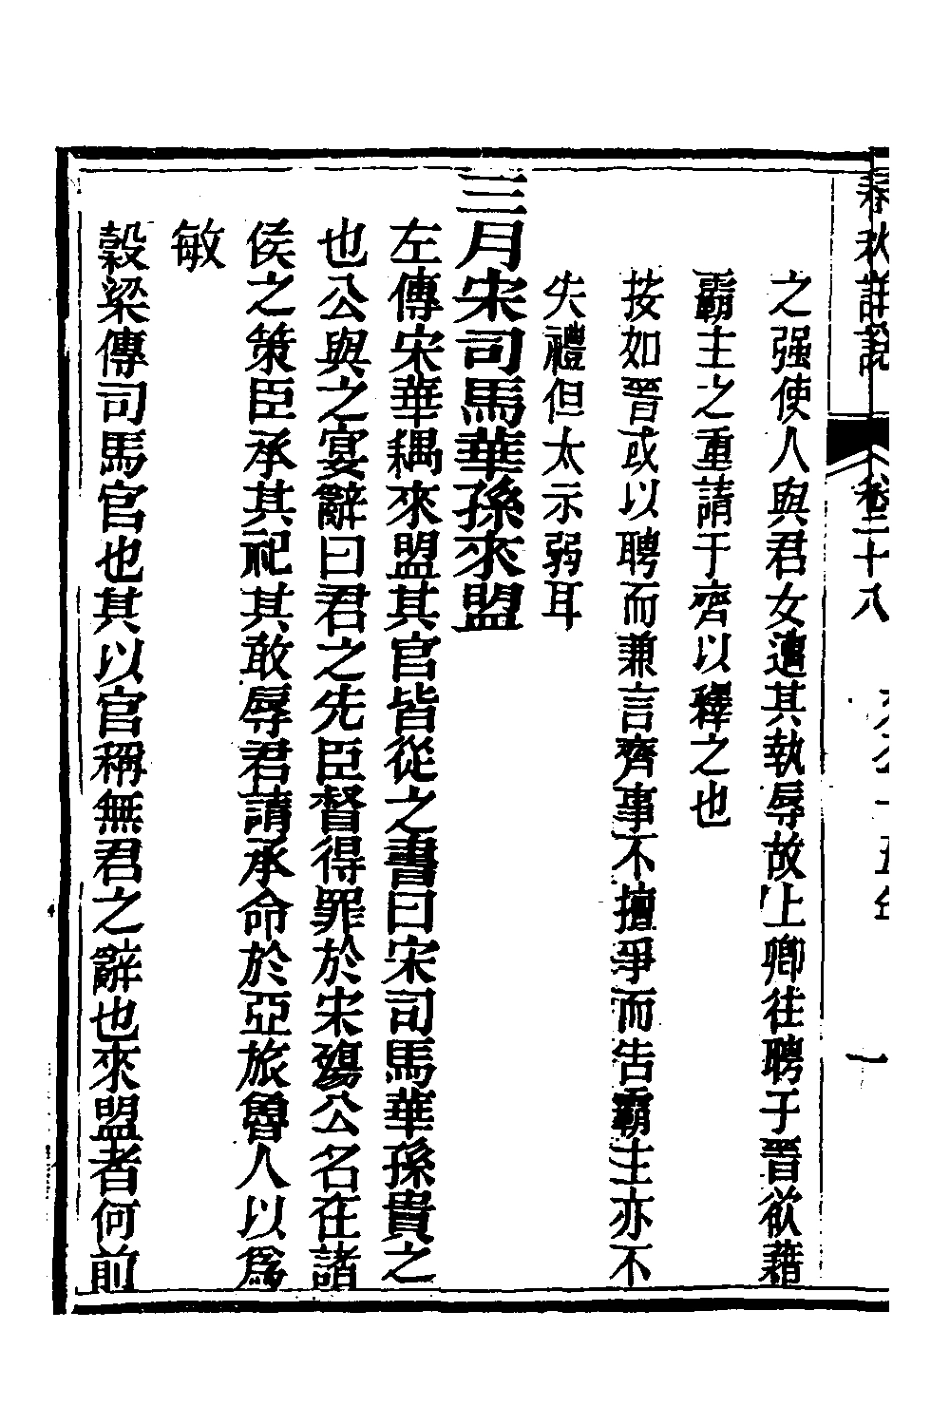 春秋詳說 卷二十八 文公十五年 一
之强使人與君女遭其執辱故上卿往聘于晉欲藉
霸主之重請于齊以釋之也
按如晉或以聘而兼言齊事不擅爭而告霸主亦不
失禮但太示弱耳
三月宋司馬華孫來盟
左傳宋華耦來盟其官皆從之書曰宋司馬華孫貴之
也公與之宴辭曰君之先臣督得罪於宋殤公名在諸
侯之策臣承其祀其敢辱君請承命於亞旅魯人以爲
敏
穀梁傳司馬官也其以官稱無君之辭也來盟者何前